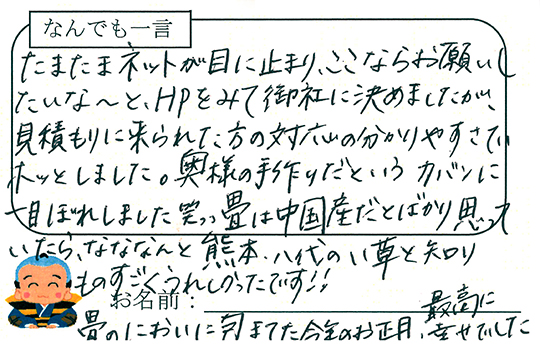 なんでも一言
たまたまネットが目に止まり、ここならお願いし
たいな〜と、HPをみて御社に決めましたが、
見積もりに来られた方の対応の分かりやすさでい
ホッとしました。奥様の手作りだという カバンに
一目ぼれしました笑っっ畳は中国産だとばかり思って
いたら、なななんと 熊本、八代のい草と知り
ものすごくうれしかったです!!
お名前:
最高に
畳のにおいに包まれた今年のお正月、幸せでした